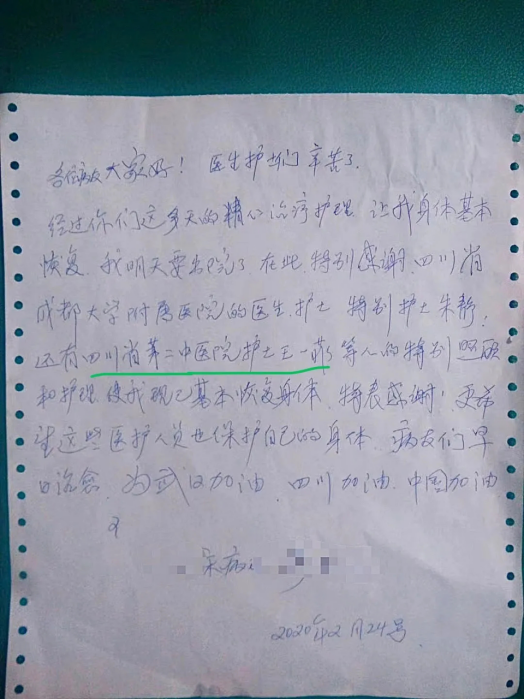 各位病友大家好！ 医生护士们辛苦了.
经过你们这多天的精心治疗护理 让我身体基本
恢复. 我明天要出院了 在此, 特别感谢. 四川省
成都大学附属医院的医生.护士 特别护士朱静.
还有四川省第二中医院护士王一 等人的特别照顾
和护理 使我现已基本恢复身体. 特表感谢! 更希
望这些医护人员也保护自己的身体. 病友们早
日治愈. 为武汉加油. 四川加油. 中国加油
2020年2月24号.